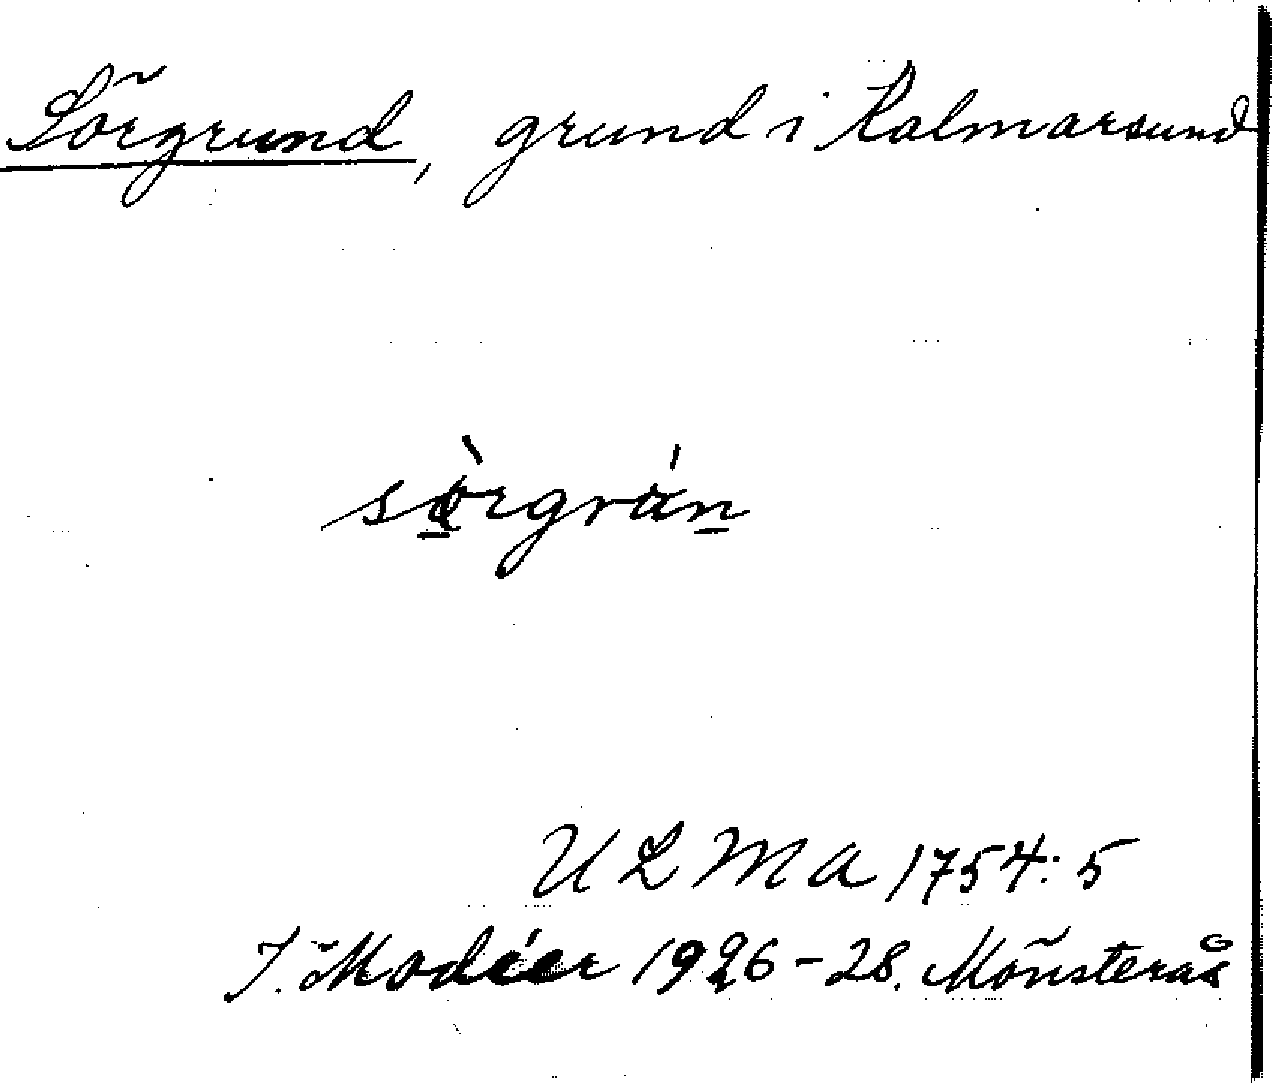 Sörgrund, grund i Kalmarsund
sö̀rgrán
ULMA 1754:5
I. Modéer 1926-28. Mönsterås